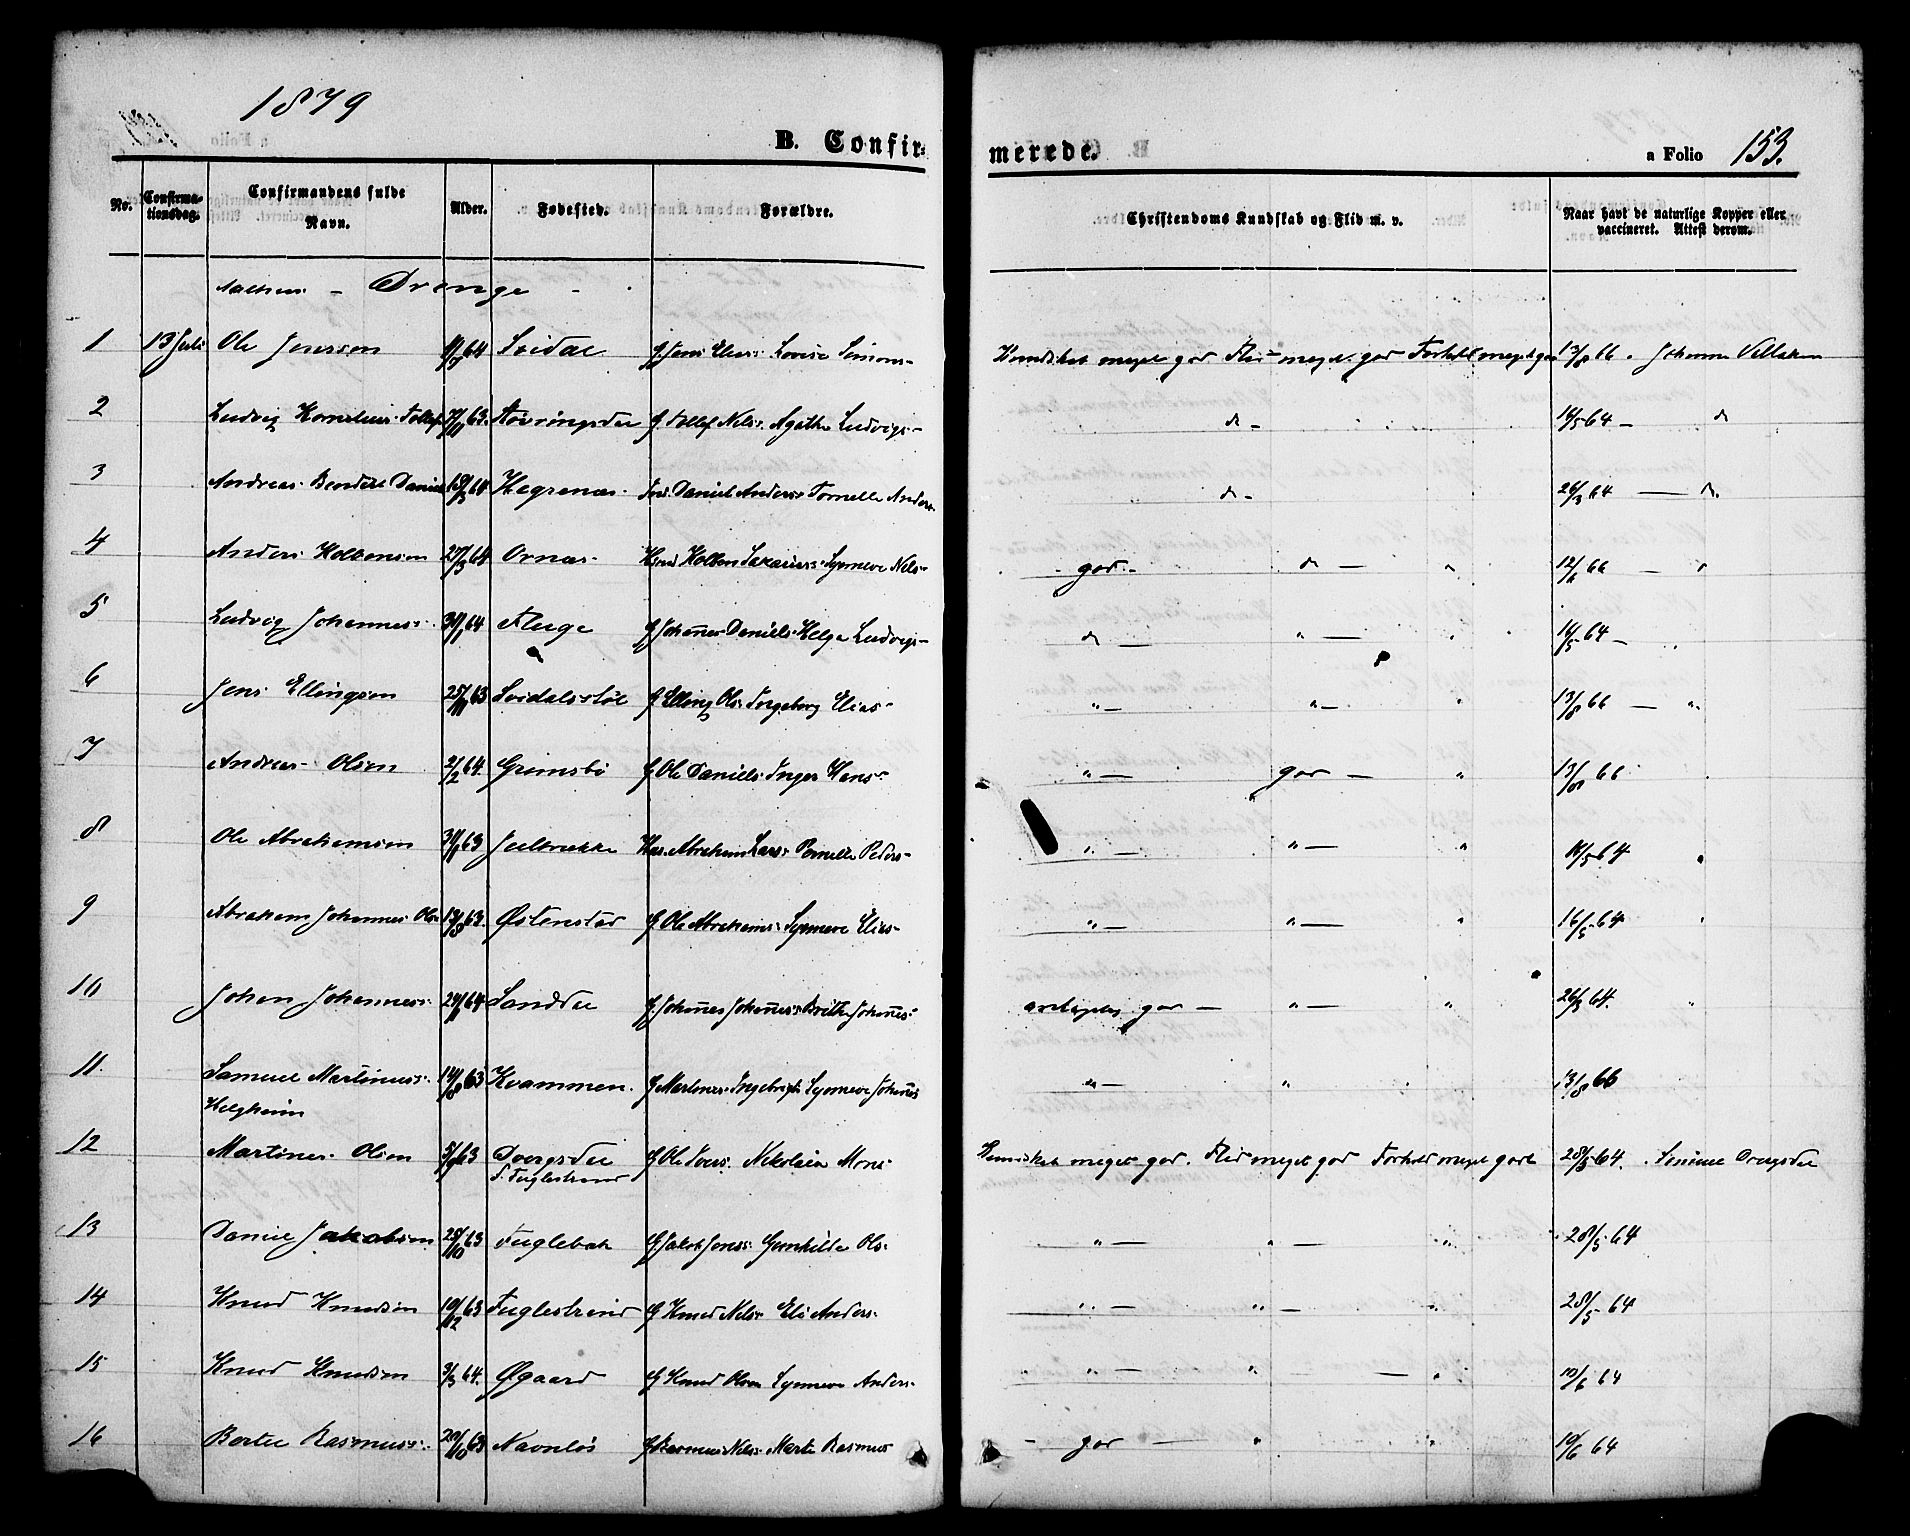 1879
B. Confirmerede.
a Folio 153.
No. Confirmationsdag. Confirmandens fulde Navn. Alder. Fødested. Forældre. Christendoms Kundskab og Flid m. v. Naar havt de naturlige Kopper eller vaccineret. Attest derom.
Drenge
1 13 Juli Ole Jensson 64 Svidal G. Jens Elias: Lovise Simons- Kundskab meget god Flid meget god Forhold meget god 13/8 66.
2 Ludvig Kornelius Tollefs 63. G Tollef Nels: Agathe Ludvigs- do - 16/5 64 - do
3 Andreas Bendik Daniels 64 Hegrenæs Daniel Anders: Anders- do - 26/3 64 — do
4 Anders Kolbensen 27/3 64 Ornæs Kolben Sakarias: Synneve Nels- - god - do — 12/6 66 —
5 Ludvig Johannes: 64 Fluge G Johanes Daniels: Helge Ludvigs- do " — 16/5 64 -
6 Jens Ellingsen 25/11 63 Svidalsstøl G Elling Ols: Ingeborg Elias- " — " — " 13/8 66 — "
7 Andreas Olsen 2/2 64 Grimsbø G Ole Daniels: Inger Hans- " — god — " 13/8 66
8 Ole Abrahamsen 63 Abraham Lars: Pernille Peders- " — " — " 16/5 64
9 Abraham Johannes Ols: 13/8 63. Østenstad G Ole Abrahams: Synneve Elias- " — " — " 16/5 64 "
10 Johan Johannes: 64 Sanddal G. Johanes Johanes: Brithe Johanes- god — " — " 26/3 64. "
11. Samuel Martinus: 14/8 63 Kvammen G Martines Ingebrigt: Synneve Johanes " — " " 13/8 66
Helgheim
12 Martines Olsen 63 Dvergsdal G Ole Ivers: Nikolaia Mons- Kundskab meget god. Flid meget god Forhold meget godt 28/5 64.
Fuglestrand
13 Daniel Jakobsen 28/10 63 Fuglebak G Jakob Jens: Gunhilde Ols- " — " — " 28/5 64
14 Knud Knudsen 10/12 63 Fuglestrand G Knud Nels: Eli Anders- " — " — " 28/5 64
15 Knud Knudsen 3/3 64. Øgaard G Knud Olsen Synneve Anders- " — " — " 10/6 64
16 Bertel Rasmus: 20/10 63 Navnløs G Rasmus Nels: Marte Rasmus - god — " " 10/6 64